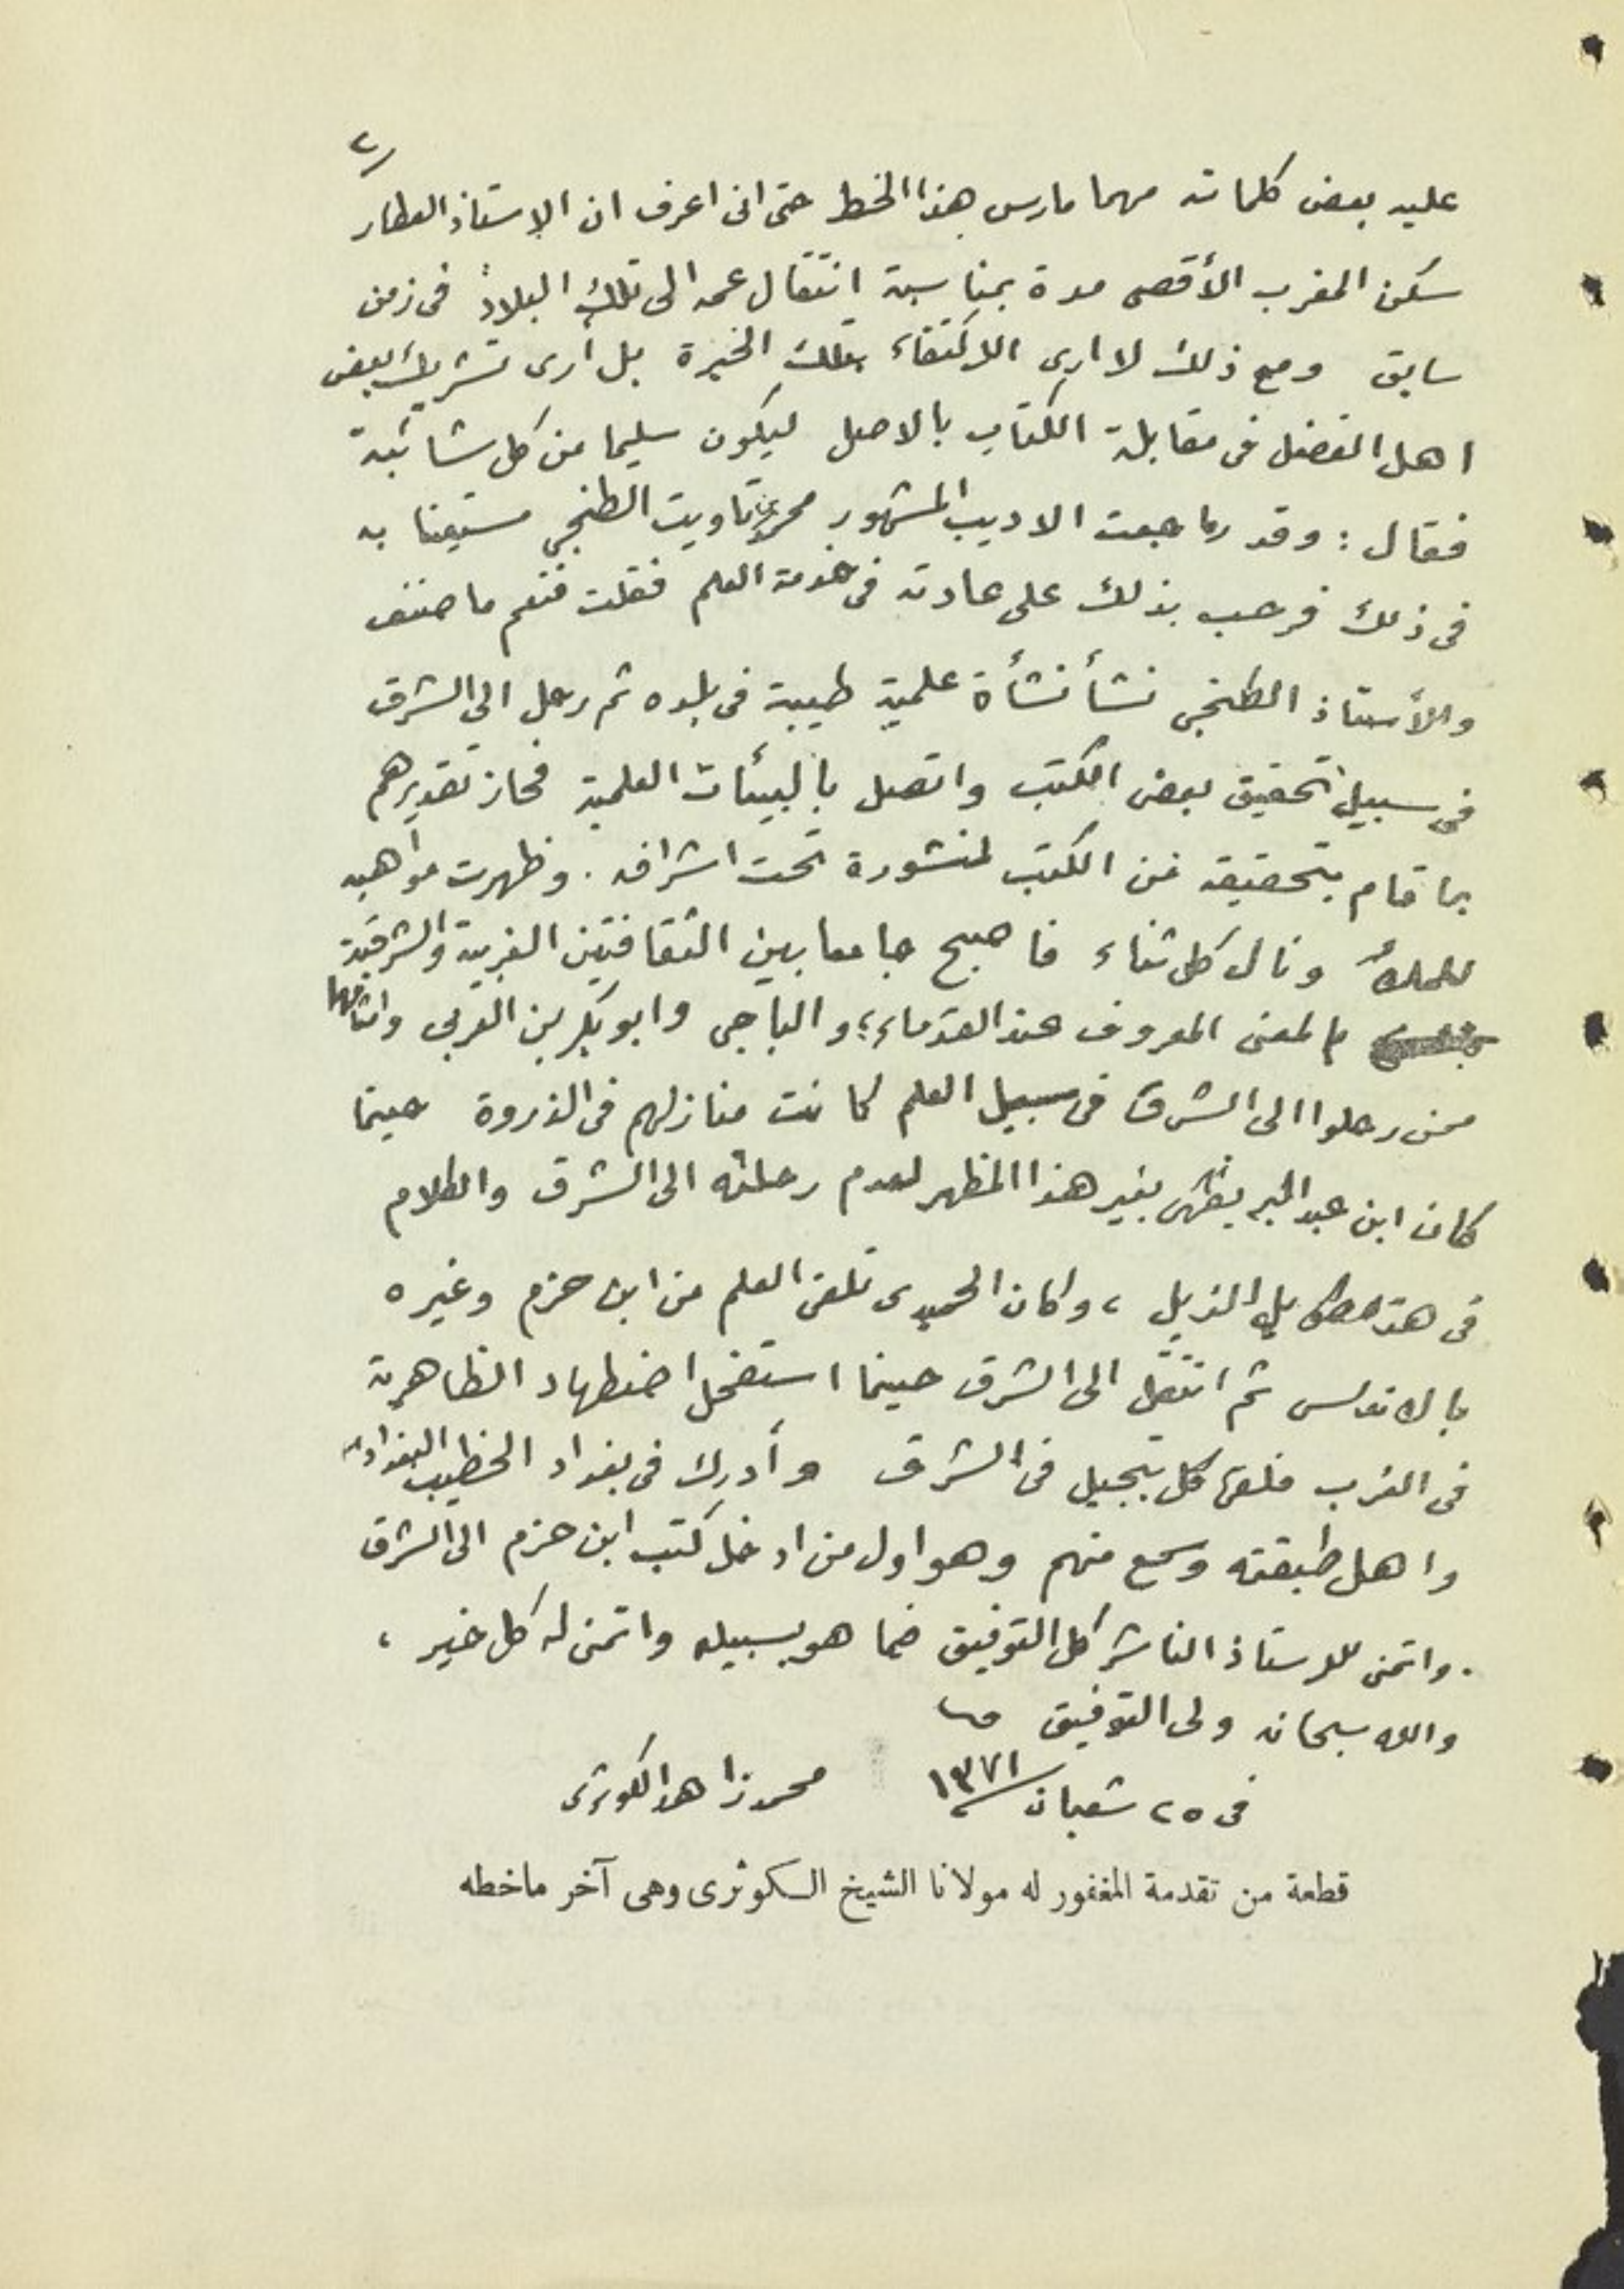 ٢
عليه بعض كلماته مهما مارس هذا الخط حتى انى اعرف ان الاستاذ العطار
سكن المغرب الأقصى مدة بمناسبة انتقال عمه الى تلك البلاد فى زمن
سابق ومع ذلك لا ارى الاكتفاء بتلك الخبرة بل أرى تشريك بعض
اهل الفضل فى مقابلة الكتاب بالاصل ليكون سليما من كل شائبة
فقال : وقد راجعت الاديب المشهور محمد بن تاويت الطنجي مستعينا به
فى ذلك فرحب بذلك على عادته فى خدمة العلم فقلت فنعم ما صنف
والأستاذ الطنجى نشأ نشأة علمية طيبة فى بلده ثم رحل الى الشرق
فى سبيل تحقيق بعض الكتب واتصل بالبيئات العلمية فحاز تقديرهم
بما قام بتحقيقه من الكتب لمنشورة تحت اشرافه . وظهرت مواهبه
للملأ ونال كل ثناء فاصبح جامعا بين الثقافتين الغربية والشرقية
بالمعنى المعروف عند القدماء ؛ والباجى وابو بكر بن العربى وامثالهما
ممن رحلوا الى الشرق فى سبيل العلم كانت منازلهم فى الذروة حينما
كان ابن عبد البر يظهر بغير هذا المظهر لعدم رحلته الى الشرق والكلام
فى هذا طويل الذيل ، وكان الحميدى تلقى العلم من ابن حزم وغيره
بالاندلس ثم انتقل الى الشرق حينما استفحل اضطهاد الظاهرية
فى الغرب فلقى كل تبجيل فى الشرق وأدرك فى بغداد الخطيب البغدادى
واهل طبقته وسمع منهم وهو اول من ادخل كتب ابن حزم الى الشرق
. واتمنى للاستاذ الناشر كل التوفيق فيما هو بسبيله واتمنى له كل خير ،
والله سبحانه ولى التوفيق
فى ٢٥ شعبان ١٣٧١ محمد زاهد الكوثرى
قطعة من تقدمة المغفور له مولانا الشيخ الكوثرى وهى آخر ماخطه